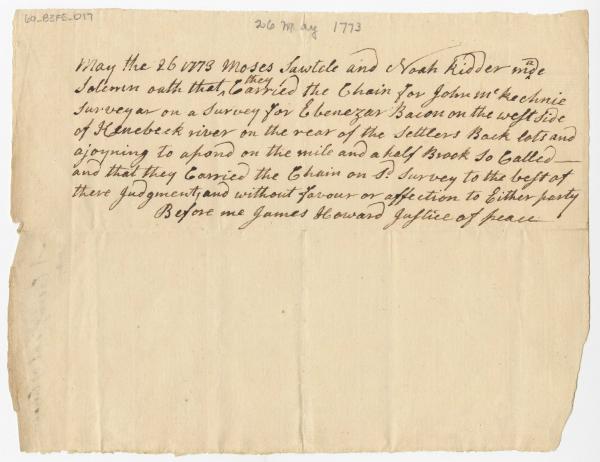 60_B3F6_D17
26 May 1773
May the 26 1773 Moses Sawtele and Noah Kidder made
Solemn oath that they Carried the Chain for John McKechnie
Surveyar on a Survey for Ebenezar Bacon on the west side
of Kenebeck river on the rear of the Settlers Back lots and
ajoyning to a pond on the mile and a half Brook So Called—
and that they Carried the Chain on Sd Survey to the best of
there Judgment, and without favour or affection to Either party
Before me James Howard Justice of peace